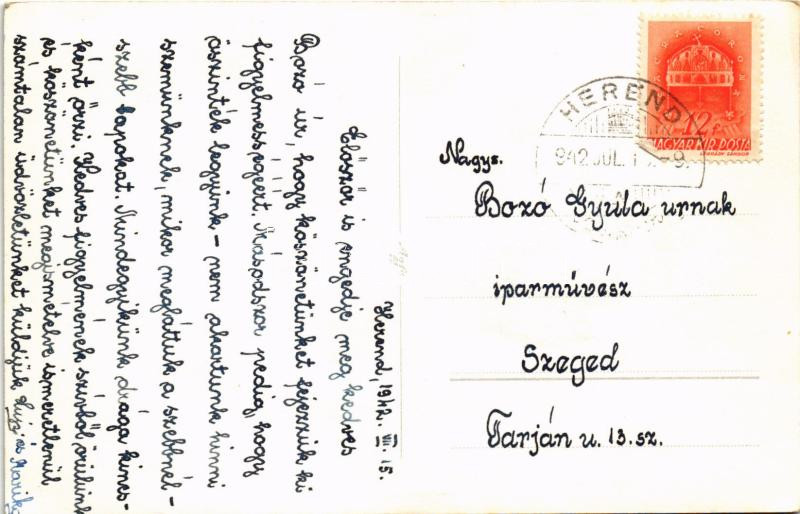 Herend, 1942. VII. 15.
Először is engedje meg kedves
Bozó úr, hogy köszönetünket fejezzük ki
figyelmességeért. Másodszor pedig, hogy
őszinték legyünk – nem akartunk hinni
szemünknek, mikor megláttuk a szebbnél-
szebb lapokat. Mindegyikünk drága kincs-
ként őrzi. Kedves figyelmének szívből örülünk
és köszönetünket megismételve ismeretlenül
számtalan üdvözletünket küldjük
és Marika
HEREND
942 JUL. 1
-9.
A SZENT KORONA
12 f
MAGYAR KIR. POSTA
Nagys.
Bozó Gyula urnak
iparművész
Szeged
Tarján u. 13. sz.